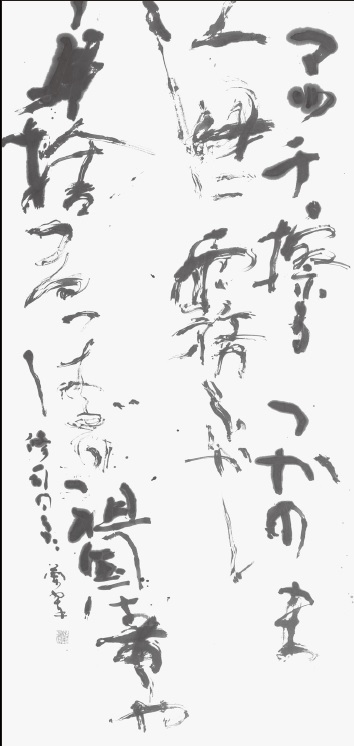 マッチ擦るつかのま
海霧ふかし
身捨つるほどの祖国は
や
修司のうた